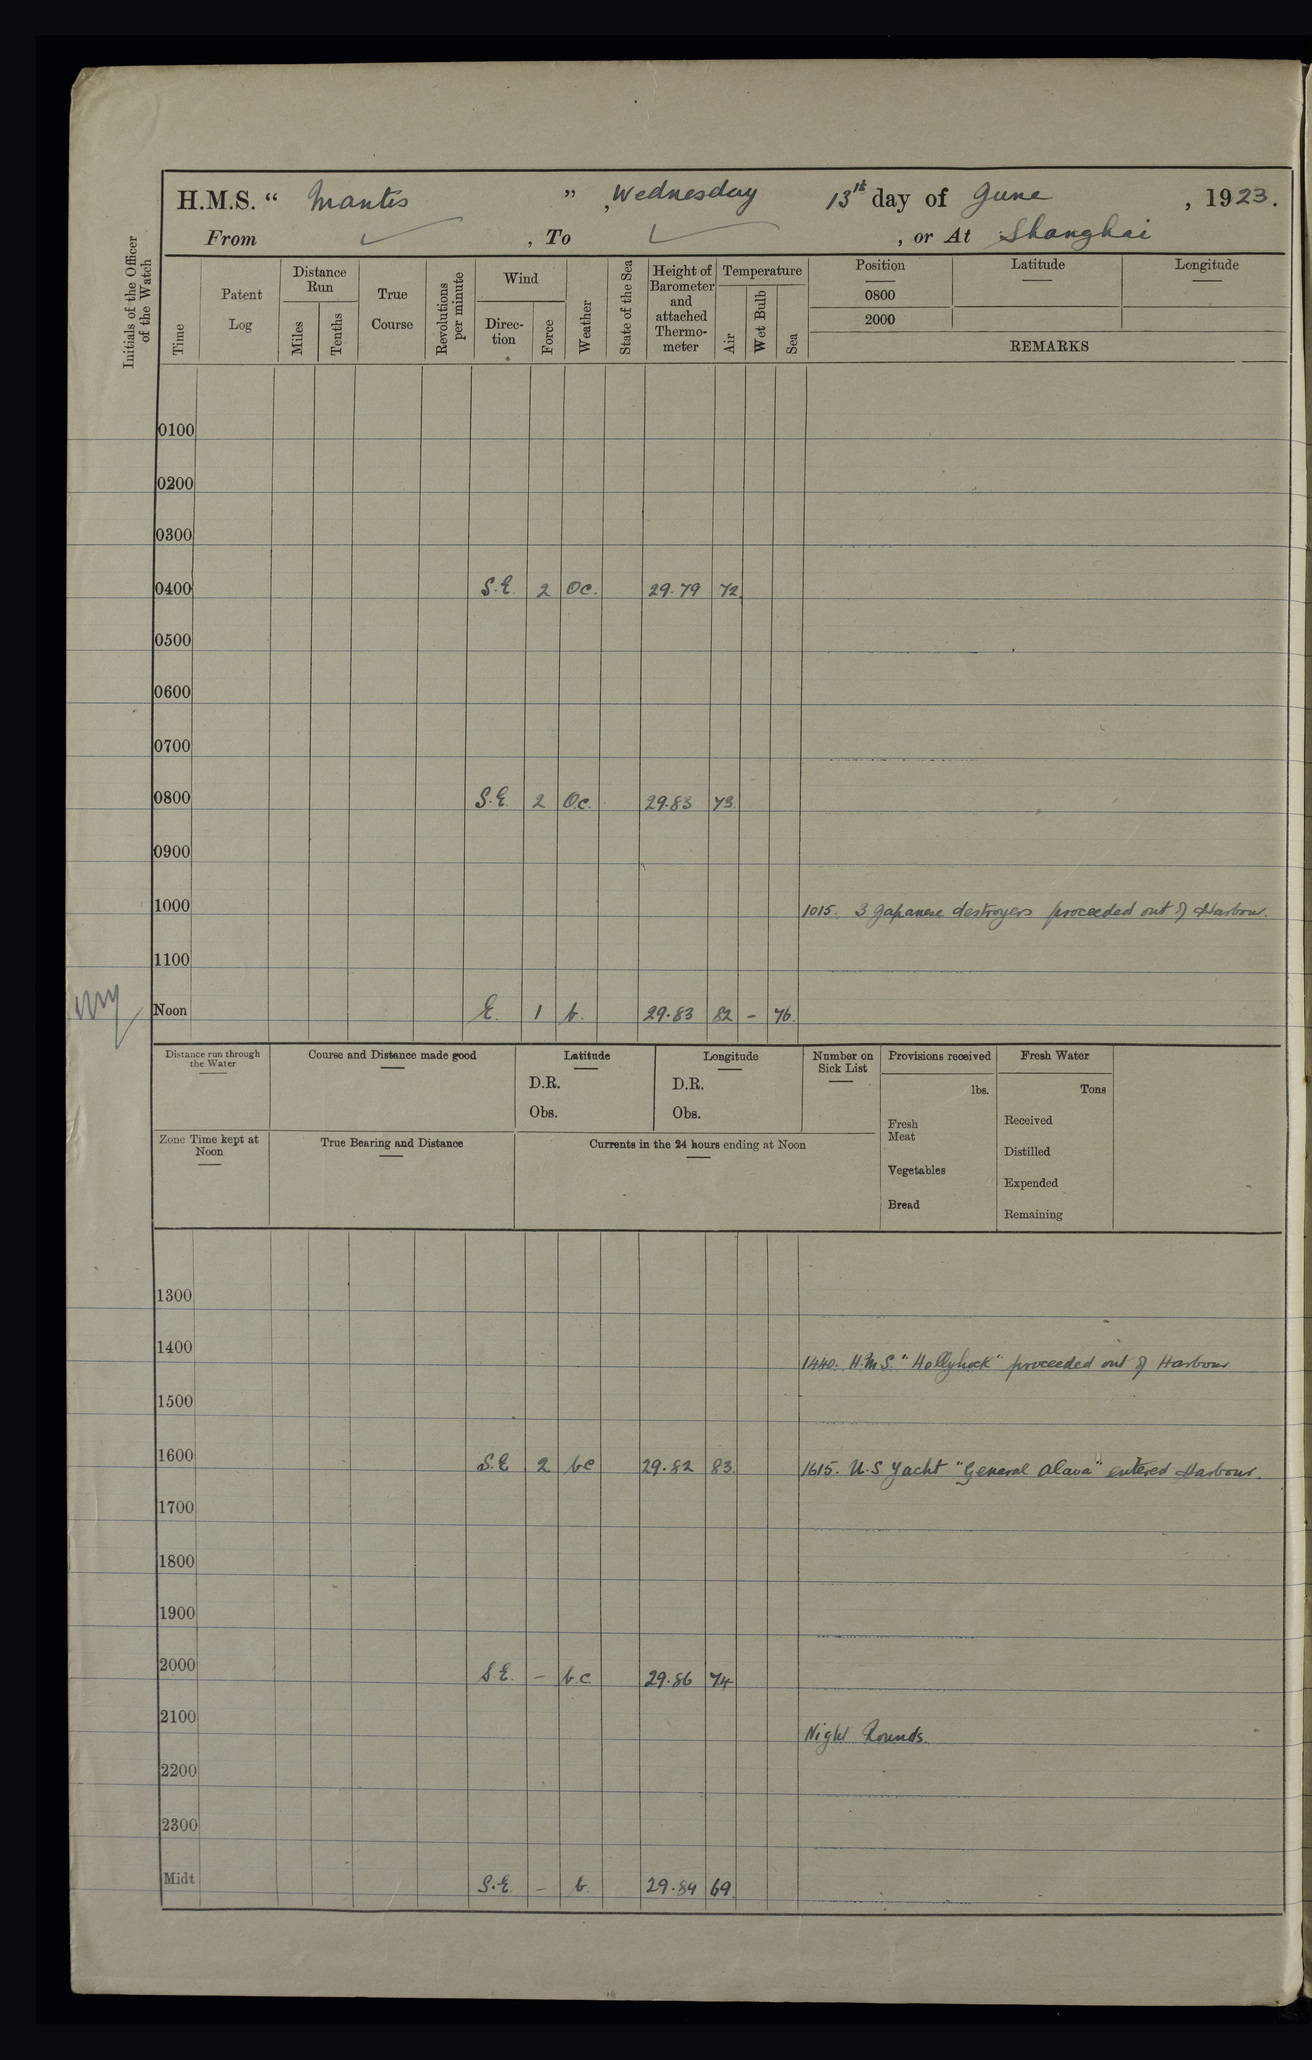 H.M.S. “ Mantis ” , Wednesday 13th day of June , 1923.
From ✓ , To ✓ , or At Shanghai
Initials of the Officer of the Watch
Time
Patent Log
Distance Run
Miles
Tenths
True Course
Revolutions per minute
Wind
Direc-tion
Force
Weather
State of the Sea
Height of Barometer and attached Thermo-meter
Temperature
Air
Wet Bulb
Sea
Position Latitude Longitude
0800
2000
REMARKS
0100
0200
0300
0400 S.E. 2 Oc. 29.79 72
0500
0600
0700
0800 S.E. 2 Oc. 29.83 73
0900
1000 1015. 3 Japanese destroyers proceeded out of Harbour.
1100
Noon E. 1 b. 29.83 82 – 76.
Distance run through the Water
Course and Distance made good
Latitude
D.R.
Obs.
Longitude
D.R.
Obs.
Number on Sick List
Provisions received
lbs.
Fresh Meat
Vegetables
Bread
Fresh Water
Tons
Received
Distilled
Expended
Remaining
Zone Time kept at Noon
True Bearing and Distance
Currents in the 24 hours ending at Noon
1300
1400 1440. H.M.S. "Hollyhock" proceeded out of Harbour
1500
1600 S.E 2 bc 29.82 83. 1615. U.S Yacht "General Alava" entered Harbour.
1700
1800
1900
2000 S.E. – b.c 29.86 74
2100 Night Rounds.
2200
2300
Midt S.E. – b. 29.84 69.